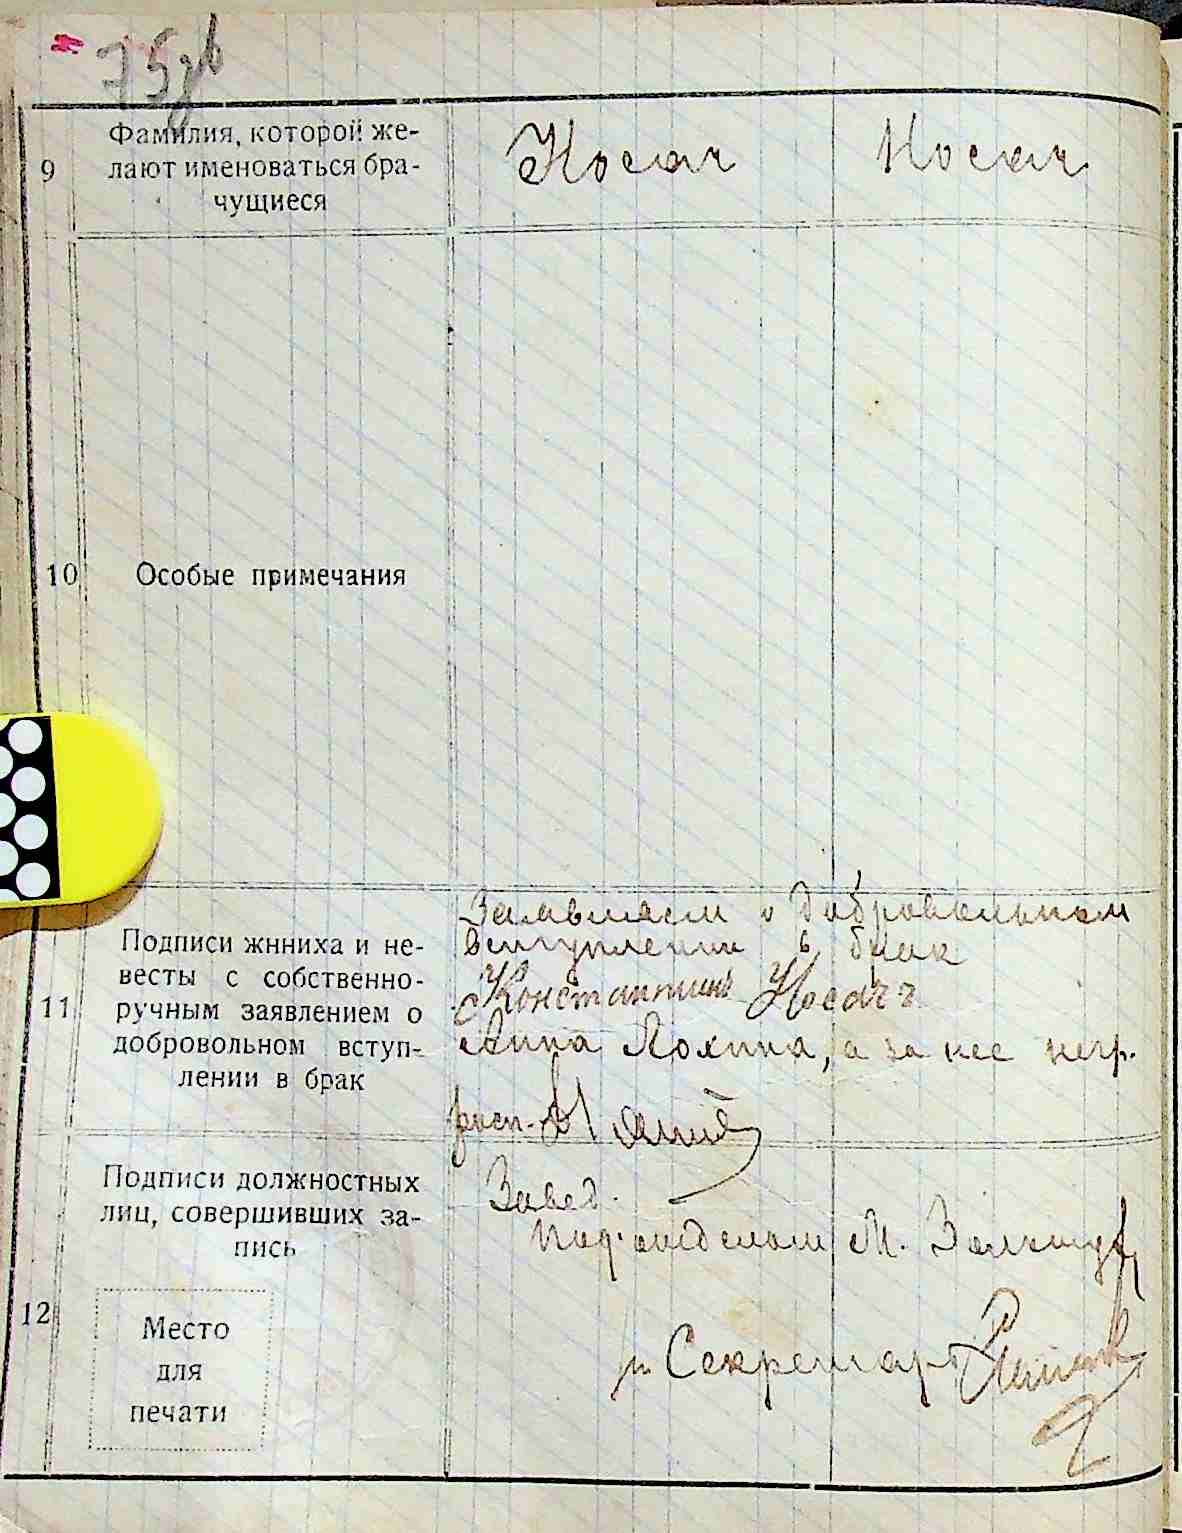 75зв
9
Фамилия, которой же-
лают именоваться бра-
чущиеся
Носач Носач
10
Особые примечания
11
Подписи жнниха и не-
весты с собственно-
ручным заявлением о
добровольном вступ-
лении в брак
Заявляем о добровольном
вступлении в брак
Константинъ Носачъ
Анна Лохина, а за нее негр.
расп.
12
Подписи должностных
лиц, совершивших за-
пись
Завед.
Подотделом М.
Секретарь
Место
для
печати